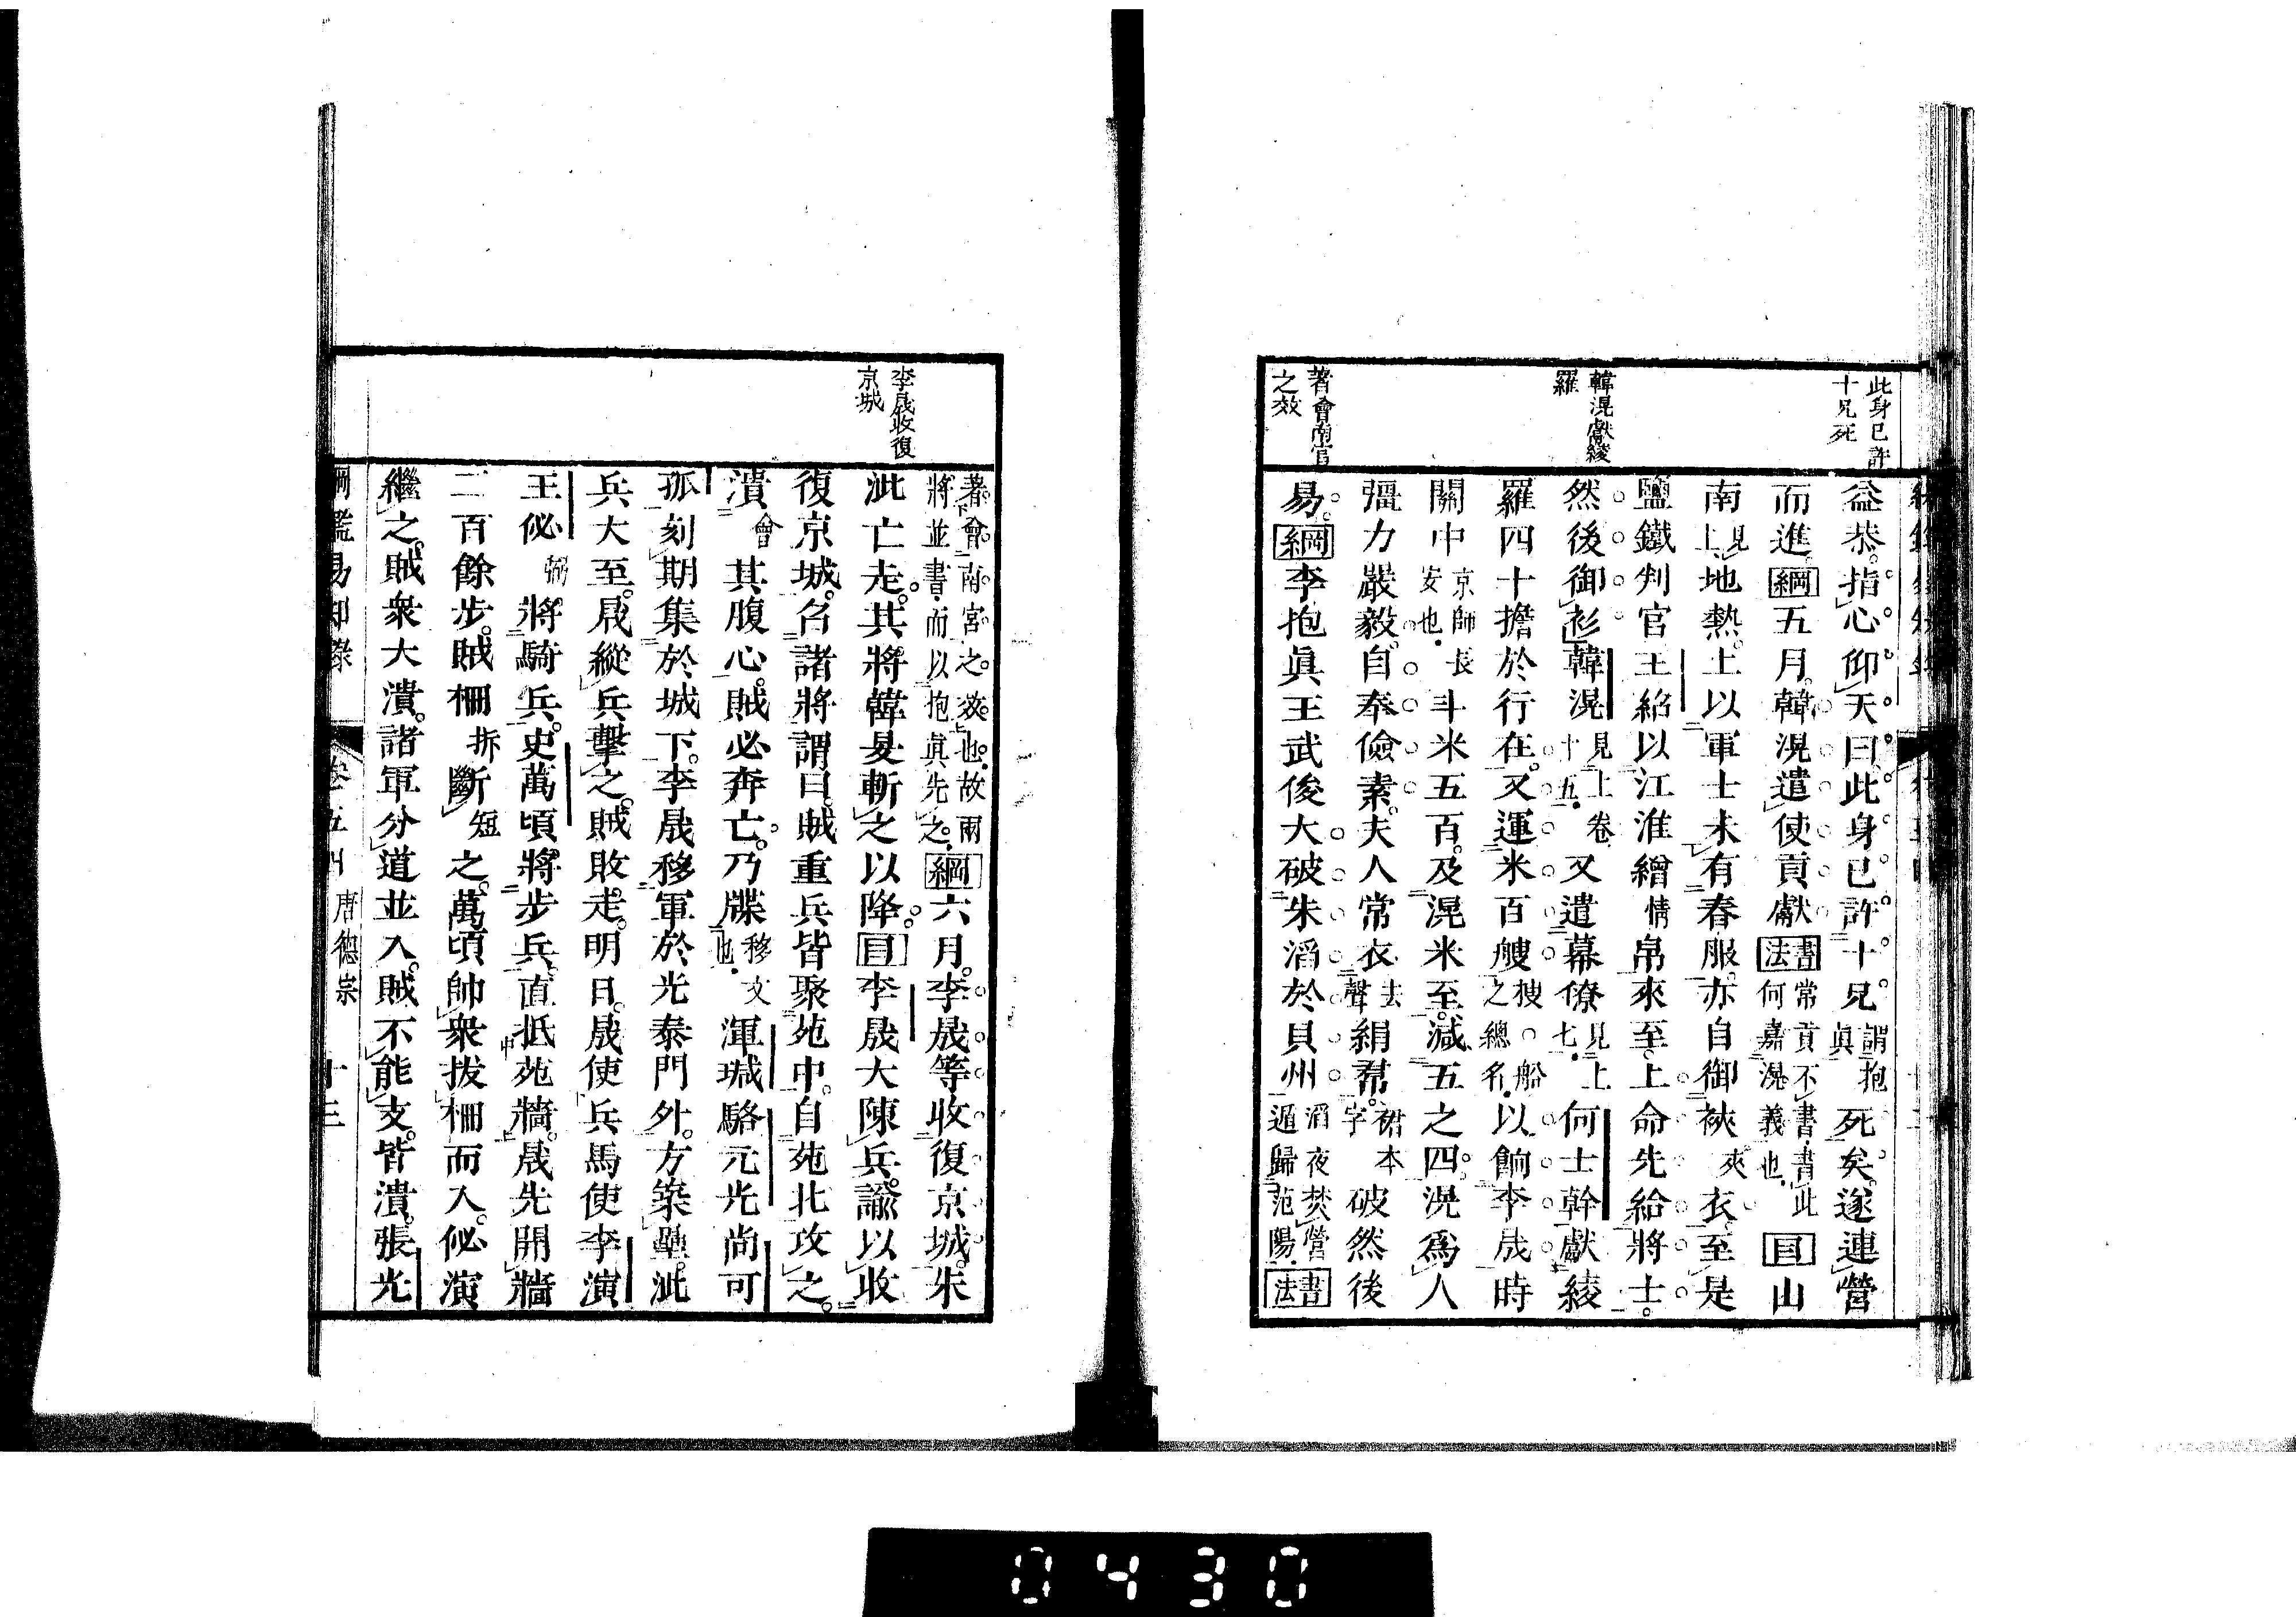 此身已許
十兄死
韓滉獻綾
羅
著會南宮
之效
益恭。指心仰天。曰。此身已許十兄謂抱眞死矣。遂連營
而進。綱五月。韓滉遣使貢獻書法常貢不書。書此何嘉滉義也。目山
南見上地熱。上以軍士未有春服。亦自御裌夾衣。至是
鹽鐵判官王紹以江淮繒情帛來至。上命先給將士。
然後御衫。韓滉見上卷十五。又遣幕僚見上七。何士幹獻綾
羅四十擔於行在。又運米百艘搜。船之總名。以餉李晟。時
關中京師長安也。斗米五百。及滉米至。減五之四。滉爲人
彊力嚴毅。自奉儉素。夫人常衣去聲絹帬。裙本字破然後
易。綱李抱眞王武俊大破朱滔於貝州滔夜焚營遁歸范陽。書法
李晟收復
京城
著會南宮之效也。故兩將並書。而以抱眞先之。綱六月。李晟等收復京城。朱
泚亡走。其將韓旻斬之以降。目李晟大陳兵。諭以收
復京城。召諸將謂曰。賊重兵皆聚苑中。自苑北攻之。
潰會其腹心。賊必奔亡。乃牒移文也。渾瑊駱元光尚可
孤刻期集於城下。李晟移軍於光泰門外。方築壘。泚
兵大至。晟縱兵擊之。賊敗走。明日。晟使兵馬使李演
王佖弼將騎兵。史萬頃將步兵。直抵苑牆。晟先開牆
二百餘步。賊柵拆斷短之。萬頃帥衆拔柵而入。佖演
繼之。賊衆大潰。諸軍分道並入。賊不能支。皆潰。張光
綱鑑易知錄 卷五四 唐德宗 十三
0430